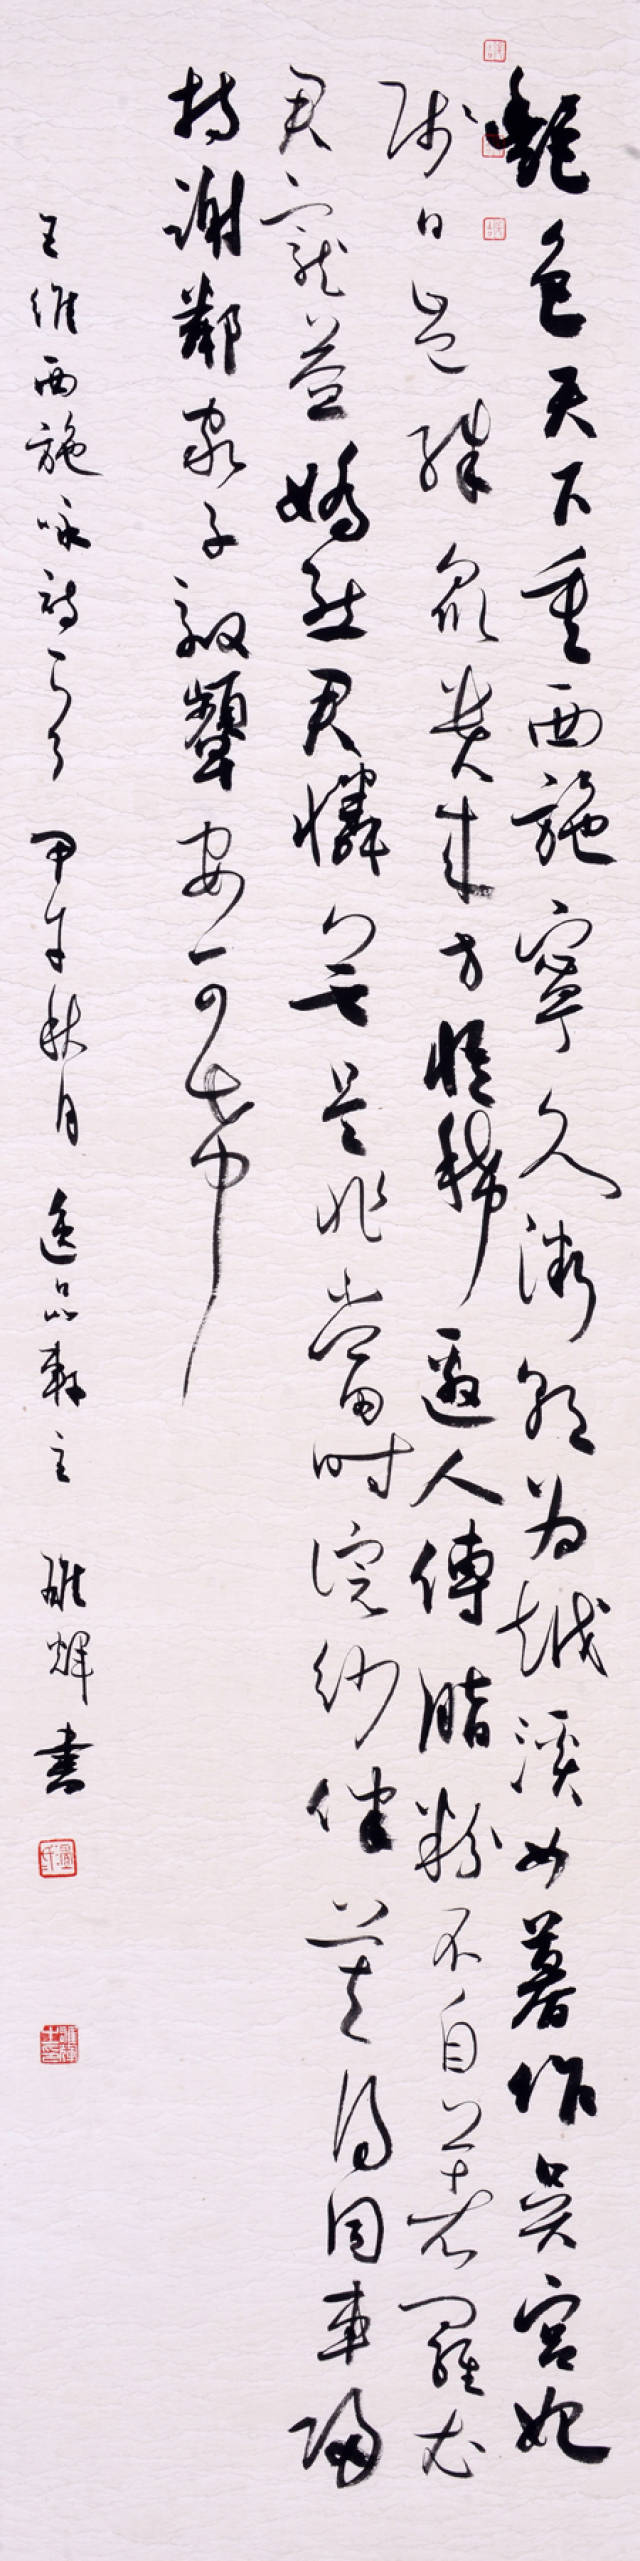 艷色天下重西施寧久微朝為越溪女暮作吳宮妃
賤日豈殊眾貴來方悟稀邀人傅脂粉不自著羅衣
君寵益嬌態君憐無是非當時浣紗伴莫得同車歸
持謝鄰家子效顰安可希
王維西施咏詩一首 甲午秋月 逸品軒主 雁輝书